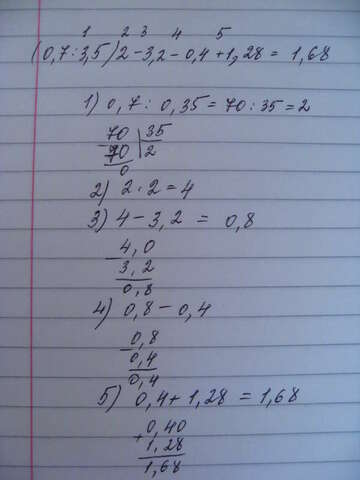 1 2 3 4 5
(0,7:3,5)2-3,2-0,4+1,28= 1,68
1) 0,7: 0,35=70:35=2
70 35
- 70 2
0
2) 2·2=4
3) 4-3,2 = 0,8
- 4,0
3,2
0,8
4) 0,8-0,4
- 0,8
0,4
0,4
5) 0,4+1,28=1,68
+ 0,40
1,28
1,68